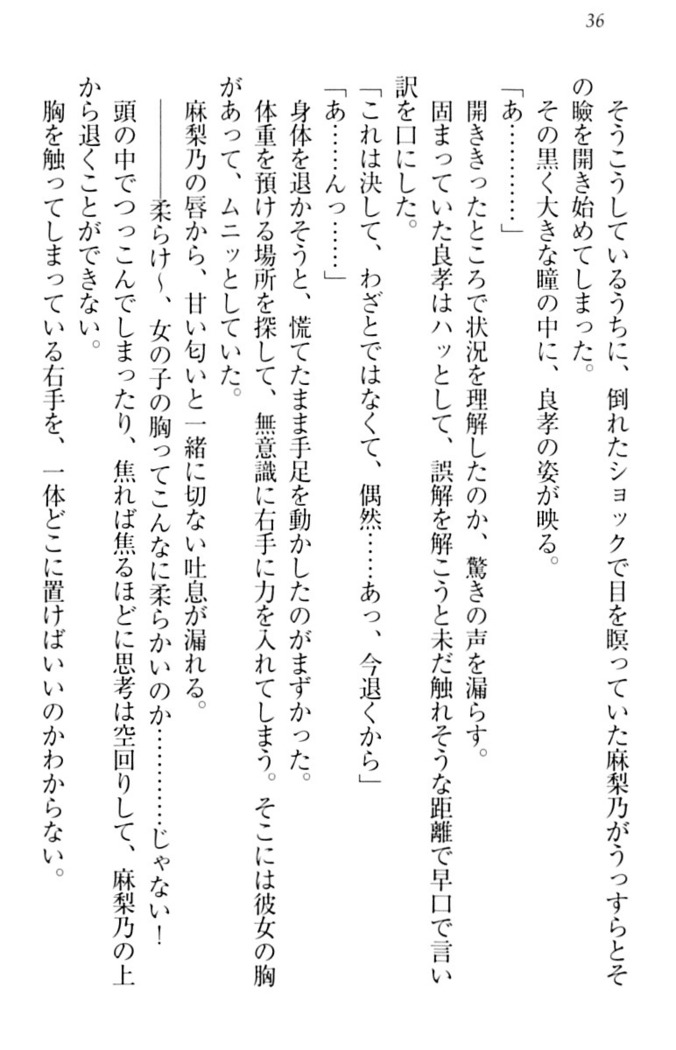 36
そうこうしているうちに、倒れたショックで目を瞑っていた麻梨乃がうっすらとそ
の瞼を開き始めてしまった。
その黒く大きな瞳の中に、良孝の姿が映る。
「あ…………」
開ききったところで状況を理解したのか、驚きの声を漏らす。
固まっていた良孝はハッとして、誤解を解こうと未だ触れそうな距離で早口で言い
訳を口にした。
「これは決して、わざとではなくて、偶然……あっ、今退くから」
「あ……んっ……」
身体を退かそうと、慌てたまま手足を動かしたのがまずかった。
体重を預ける場所を探して、無意識に右手に力を入れてしまう。そこには彼女の胸
があって、ムニッとしていた。
麻梨乃の唇から、甘い匂いと一緒に切ない吐息が漏れる。
――――柔らけ〜、女の子の胸ってこんなに柔らかいのか…………じゃない！
頭の中でつっこんでしまったり、焦れば焦るほどに思考は空回りして、麻梨乃の上
から退くことができない。
胸を触ってしまっている右手を、一体どこに置けばいいのかわからない。